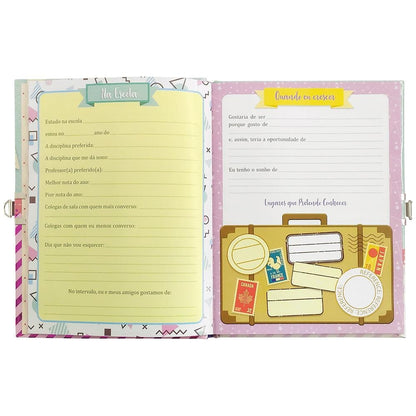 Na Escola
Estudo na escola
estou no ano do
A disciplina preferida:
A disciplina que me dá sono:
Professor(a) preferido(a):
Melhor nota do ano:
Pior nota do ano:
Colegas de sala com quem mais converso:
Colegas com quem eu menos converso:
Dia que não vou esquecer:
No intervalo, eu e meus amigos gostamos de:
Quando eu crescer
Gostaria de ser
porque gosto de
e, assim, teria a oportunidade de
Eu tenho o sonho de
Lugares que Pretendo Conhecer
FRANCE
CANADA
JAPAN